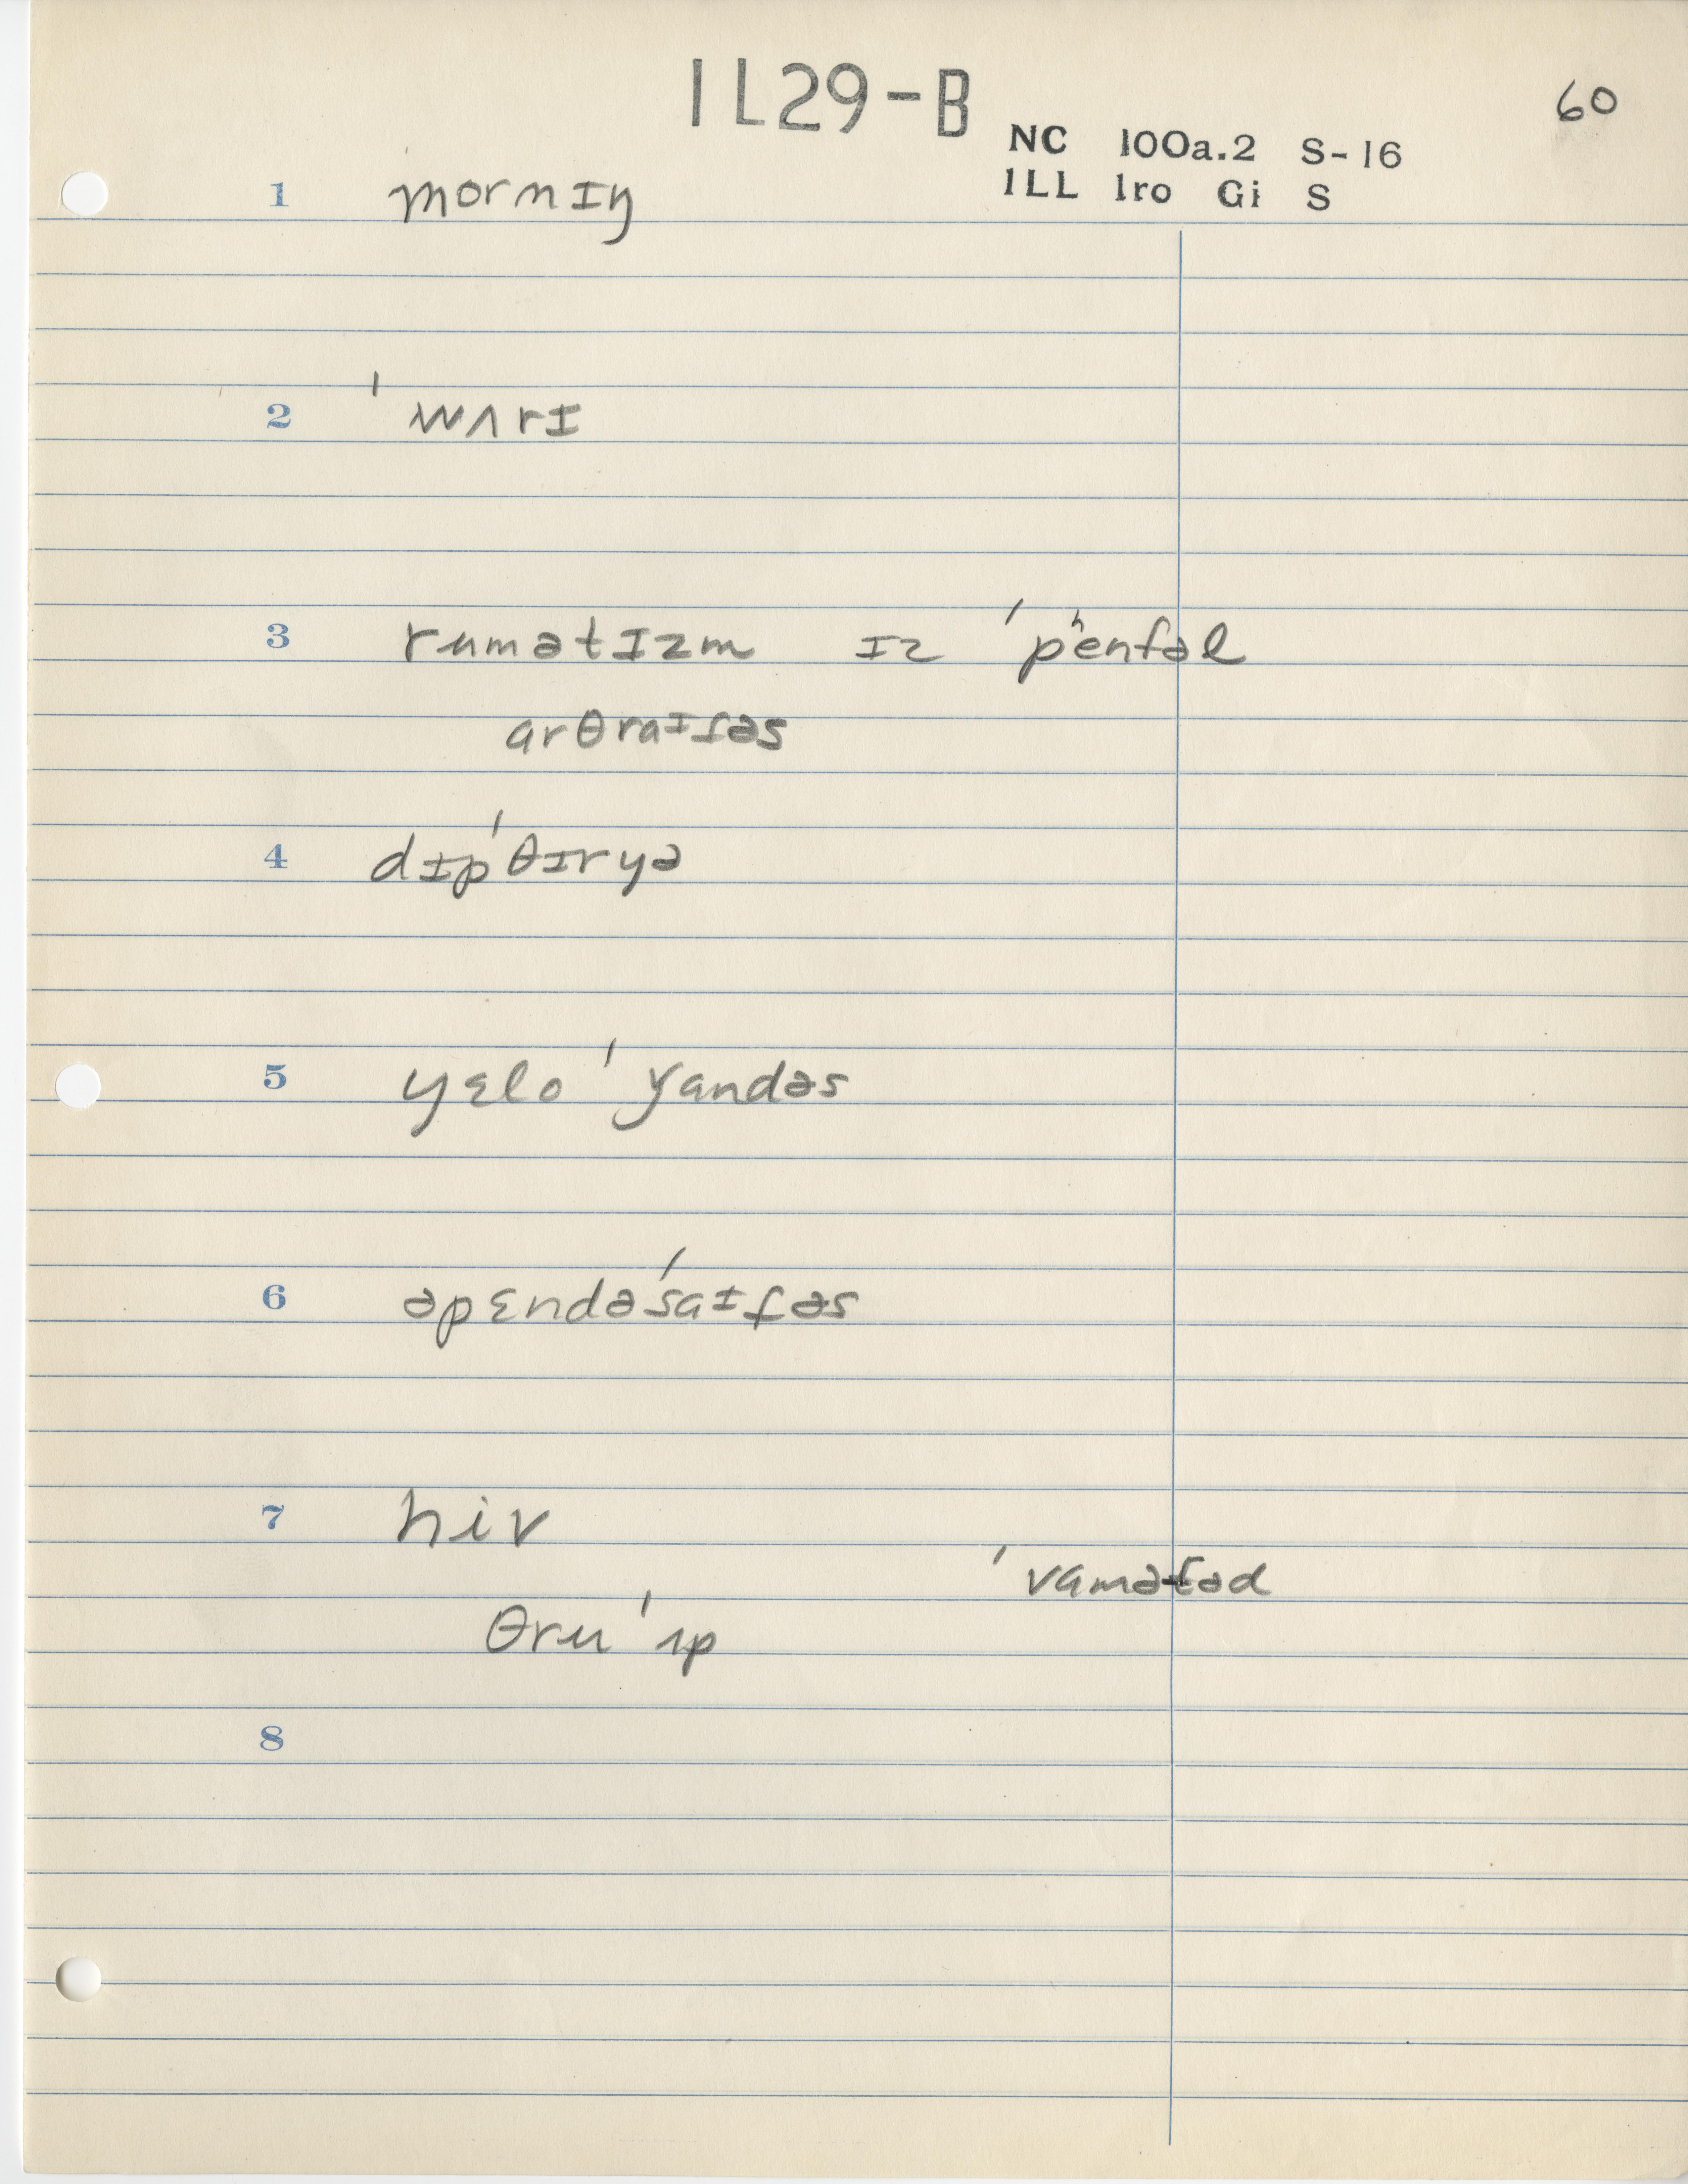 1L29-B
60
NC 100a.2 S-16
1LL Iro Gi S
1 mornɪŋ
2 ˈwʌrɪ
3 rumətɪzm ɪz ˈpʰenfəl
arθraɪɾəs
4 dɪpˈθɪryə
5 yɛlo ˈǰandəs
6 əpɛndəˈsaɪɾəs
7 hiv
ˈvamətəd
θruˈʌp
8